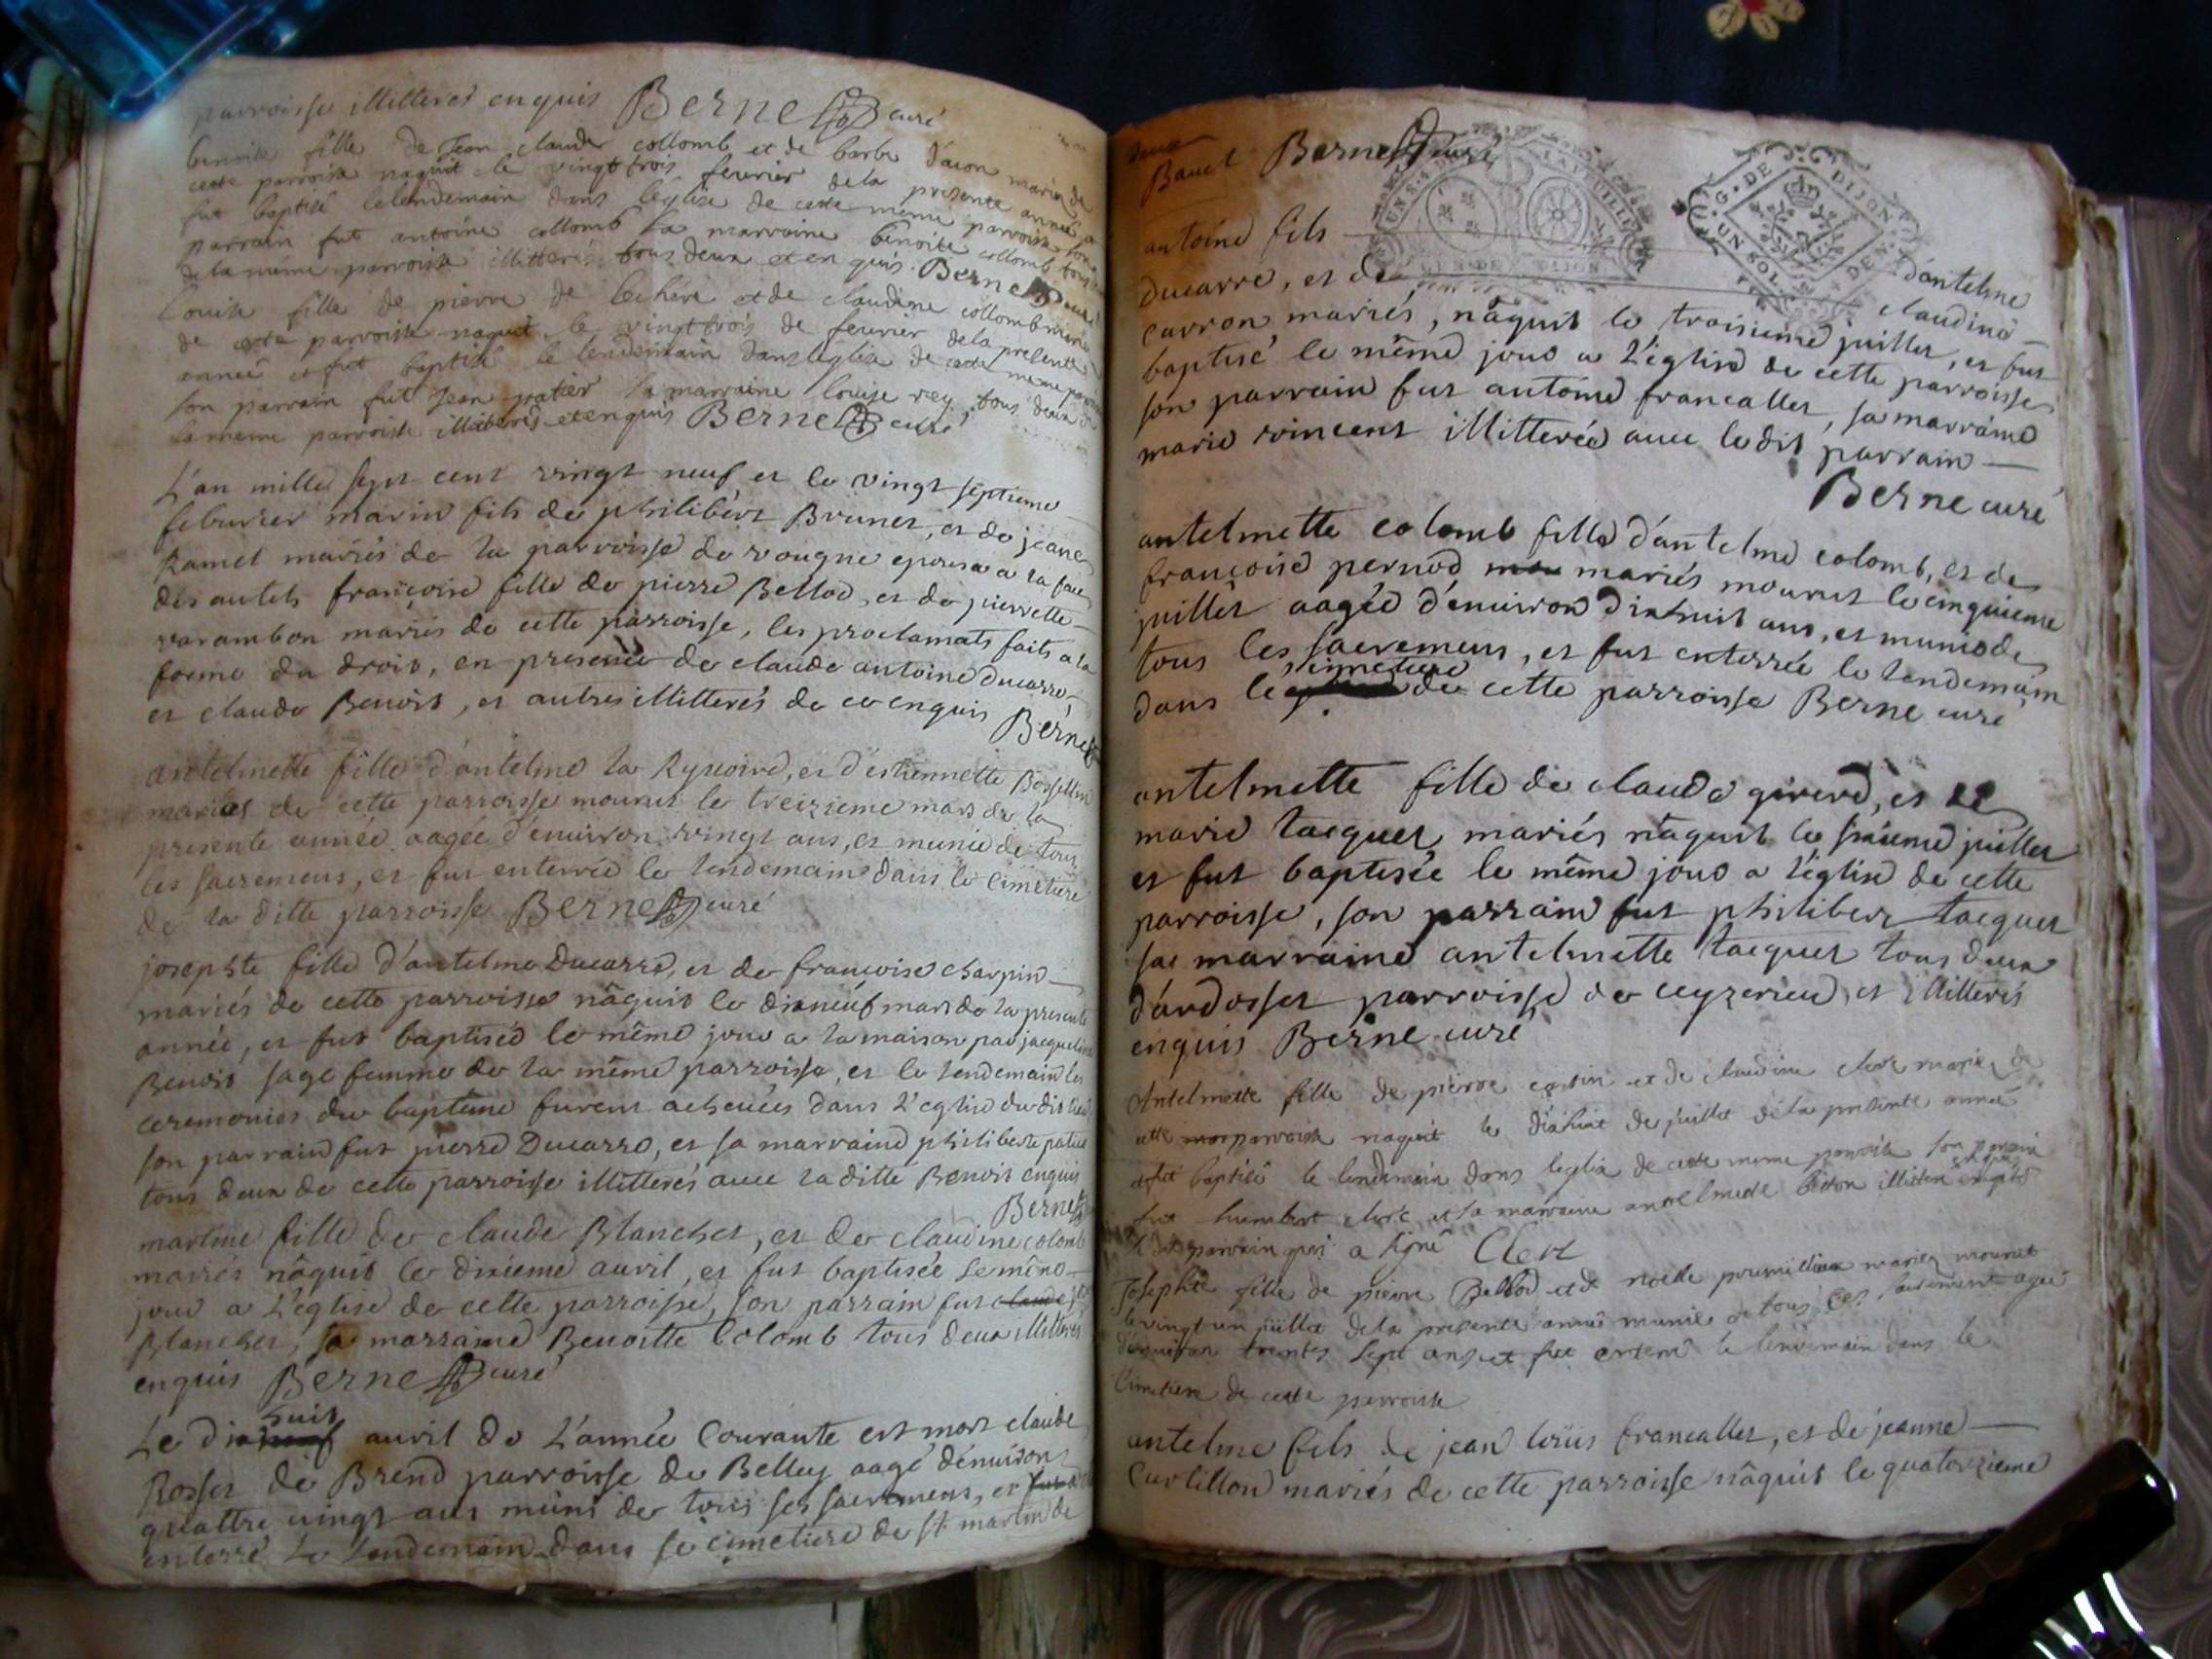 parroisse illitteres enquis Berne curé
benoite fille de Jean claude collomb et de barbe mariez de
cette parroise naquit le vingt trois fevrier dela presente année et
fut baptisé le lendemain dans leglise de cette meme paroise son
parrain fut antoine collomb sa marraine benoite collomb tous
de la meme parroise illitterés tous deux et enquis Berne curé
Louise fille de pierre de lechere et de claudine collomb mariez
de cette parroise naquit le vingt trois de fevrier dela presente
année et fut baptisé le lendemain dans leglise de cette meme
son parrain fut Jean patier sa marraine louise rey tous deux de
la meme parroise illitterés et enquis Berne curé
L'an mille sept cent vingt neuf et le vingt septieme
febvrier marin fils de philibert Brunet, et de jeane
Ramel mariés de la parroisse de vougne epousa a la face
des autels françoise fille de pierre Bellod, et de pierrette
varambon mariés de cette parroisse, les proclamats faits a la
forme du droit, en presence de claude antoine Ducarre,
et claude Benoit, et autres illitterés de ce enquis Berne
antelmette fille d'antelme la Ryvoire, et d'estiennette Rossellin
mariés de cette parroisse mourut le treizieme mars de la
presente année aagée d'environ vingt ans, et munie de tous
les sacremens, et fut enterrée le lendemain dans le cimetiere
de la ditte parroisse Berne curé
josephte fille d'antelme Ducarre, et de françoise charpin
mariés de cette parroisse nâquit le dixneuf mars de la presente
année, et fut baptisée le même jour a la maison par jacqueline
Benoit sage femme de la même parroisse, et le lendemain les
ceremonies du baptême furent achevées dans l'eglise du dit lieu
son parrain fut pierre Ducarre, et sa marraine philiberte patier
tous deux de cette parroisse illitterés avec la ditte Benoit enquis
Berne
martine fille de claude Blanchet, et de claudine colomb
mariés nâquit le dixieme avril, et fut baptisée le même
jour a l'eglise de cette parroisse, son parrain fut claude
Blanchet, sa marraine Benoitte Colomb tous deux illitterés
enquis Berne curé
huit
Le dixneuf avril de l'année Courante est mort claude
Rosset de Brend parroisse de Belley aagé d'environ
quattre vingt ans muni de tous ses sacremens, et fut
enterré le lendemain dans le cimetiere de st martin de
Bavet Berne curé
UN SOL LA FEUILLE
G. DE DIJON
UN SOL
GEN. DE DIJON
antoine fils d'antelme
Ducarre, et de claudine
carron mariés, nâquit le troisieme juillet, et fut
baptisé le même jour a l'eglise de cette parroisse
son parrain fut antoine francallet, sa marraine
marie vincent illitterée avec le dit parrain
Berne curé
antelmette colomb fille d'antelme colomb, et de
françoise pernod mou mariés mourut le cinquieme
juillet aagée d'environ dixhuit ans, et munie de
tous les sacremens, et fut enterrée le lendemain
cimetiere
dans le de cette parroisse Berne curé
antelmette fille de claude girerd, et de
marie tacquet mariés nâquit le sixieme juillet
et fut baptisée le même jour a l'église de cette
parroisse, son parrain fut philibert tacquet
sa marraine antelmette tacquet tous deux
d'ardosset parroisse de ceyzerieu et illitterés
enquis Berne curé
Antelmette fille de pierre cottin et de claudine clerc mariez de
cette parroise naquit le dixhuit de juillet dela presente année
et fut baptisé le lendemain dans leglise de cette meme parroise son parrain
fut humbert clerc et sa marraine antelmette illittere enquis
le dit parrain qui a signé Clerc
Josephte fille de pierre Bellod et de noelle premillieu mariez mourut
le vingt un juillet dela presente année munie de tous ses sacrement agée
d'environ trentes sept ans et fut enterré le lendemain dans le
Cimetiere de cette parroise
antelme fils de jean loüis francallet, et de jeanne
Curtillon mariés de cette parroisse nâquit le quatorzieme